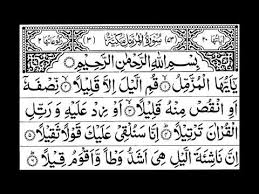 اٰيَاتُهَا ٢٠ سُوْرَةُ الْمُزَّمِّلِ مَكِّيَّةٌ (٣) رُكُوْعَاتُهَا ٢
بِسْمِ اللّٰهِ الرَّحْمٰنِ الرَّحِيْمِ
يٰٓاَيُّهَا الْمُزَّمِّلُ ۝ قُمِ الَّيْلَ اِلَّا قَلِيْلًا ۝ نِّصْفَهٗٓ
اَوِ انْقُصْ مِنْهُ قَلِيْلًا ۝ اَوْ زِدْ عَلَيْهِ وَرَتِّلِ
الْقُرْاٰنَ تَرْتِيْلًا ۝ اِنَّا سَنُلْقِيْ عَلَيْكَ قَوْلًا ثَقِيْلًا ۝
اِنَّ نَاشِئَةَ الَّيْلِ هِيَ اَشَدُّ وَطْاً وَّاَقْوَمُ قِيْلًا ۝